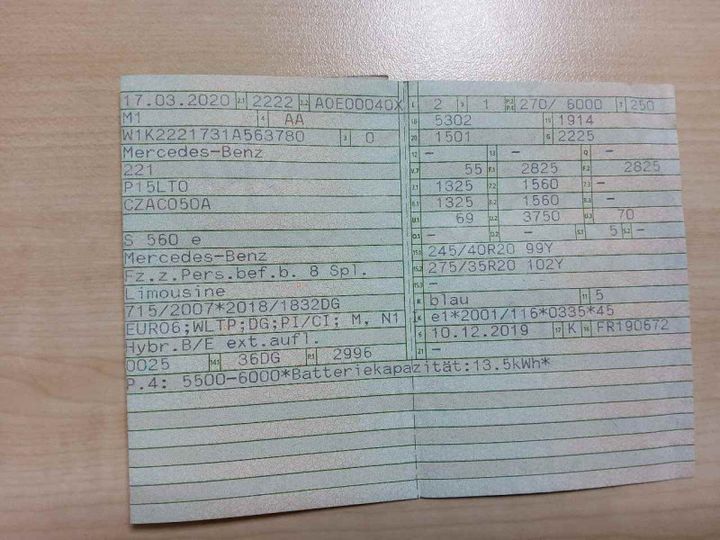 17.03.2020 2.1 2222 2.2 A0E00040X
M1 4 AA
W1K2221731A563780 3 0
Mercedes-Benz
221
P15LT0
CZAC050A
S 560 e
Mercedes-Benz
Fz.z.Pers.bef.b. 8 Spl.
Limousine
715/2007*2018/1832DG
EURO6;WLTP;DG;PI/CI; M, N1
Hybr.B/E ext.aufl.
0025 14.1 36DG P.1 2996
P.4: 5500-6000*Batteriekapazität:13.5kWh*
L 2 9 1 P.2 P.4 270/ 6000 T 250
18 5302 19 1914
20 1501 G 2225
12 - 13 - Q -
V.7 55 F.1 2825 F.2 2825
7.1 1325 7.2 1560 7.3 -
8.1 1325 8.2 1560 8.3 -
U.1 69 U.2 3750 U.3 70
O.1 - O.2 - S.1 5 S.2 -
15.1 245/40R20 99Y
15.2 275/35R20 102Y
15.3 -
R blau 11 5
K e1*2001/116*0335*45
6 10.12.2019 17 K 16 FR190672
21 -